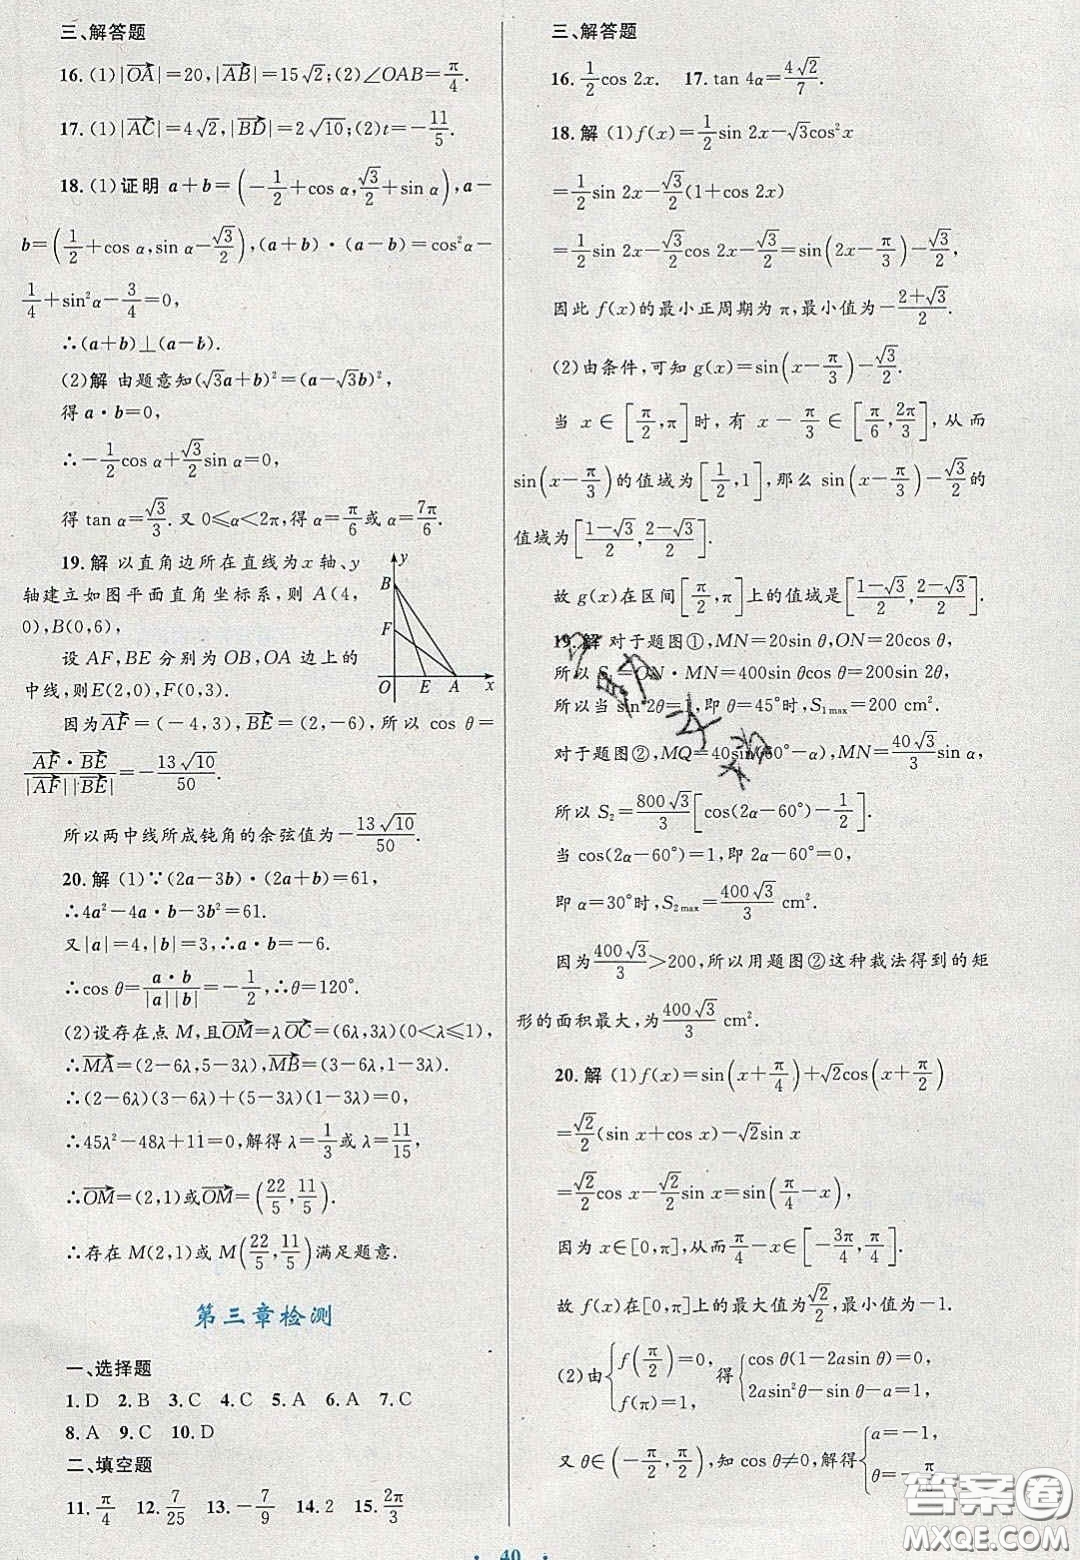 三、解答题
16. (1)|OA|=20,|AB|=15√2;(2)∠OAB=π/4.
17. (1)|AC|=4√2,|BD|=2√10;(2)t=-11/5.
18. (1)证明 a+b=(-1/2+cos α,√3/2+sin α),a-
b=(1/2+cos α,sin α-√3/2),(a+b)·(a-b)=cos²α-
1/4+sin²α-3/4=0,
∴(a+b)⊥(a-b).
(2)解 由题意知(√3a+b)²=(a-√3b)²,
得 a·b=0,
∴-1/2cos α+√3/2sin α=0,
得 tan α=√3/3. 又 0≤α<2π,得 α=π/6或 α=7π/6.
19. 解 以直角边所在直线为 x 轴、y
轴建立如图平面直角坐标系,则 A(4,
0),B(0,6),
设 AF,BE 分别为 OB,OA 边上的
中线,则E(2,0),F(0,3).
y
B
F
O E A x
因为AF=(-4,3),BE=(2,-6),所以 cos θ=
AF·BE/|AF||BE|=-13√10/50.
所以两中线所成钝角的余弦值为-13√10/50.
20. 解 (1)∵(2a-3b)·(2a+b)=61,
∴4a²-4a·b-3b²=61.
又|a|=4,|b|=3,∴a·b=-6.
∴cos θ=a·b/|a||b|=-1/2,∴θ=120°.
(2)设存在点 M,且OM=λOC=(6λ,3λ)(0<λ≤1),
∴MA=(2-6λ,5-3λ),MB=(3-6λ,1-3λ).
∴(2-6λ)(3-6λ)+(5-3λ)(1-3λ)=0,
∴45λ²-48λ+11=0,解得 λ=1/3或 λ=11/15,
∴OM=(2,1)或OM=(22/5,11/5).
∴存在 M(2,1)或 M(22/5,11/5)满足题意.
第三章检测
一、选择题
1. D 2. B 3. C 4. C 5. A 6. A 7. C
8. A 9. C 10. D
二、填空题
11. π/4 12. 7/25 13. -7/9 14. 2 15. 2π/3
三、解答题
16. 1/2cos 2x. 17. tan 4α=4√2/7.
18. 解 (1)f(x)=1/2sin 2x-√3cos²x
=1/2sin 2x-√3/2(1+cos 2x)
=1/2sin 2x-√3/2cos 2x-√3/2=sin(2x-π/3)-√3/2,
因此 f(x)的最小正周期为 π,最小值为-2+√3/2.
(2)由条件,可知 g(x)=sin(x-π/3)-√3/2.
当 x∈[π/2,π]时,有 x-π/3∈[π/6,2π/3],从而
sin(x-π/3)的值域为[1/2,1],那么 sin(x-π/3)-√3/2的
值域为[1-√3/2,2-√3/2].
故 g(x)在区间[π/2,π]上的值域是[1-√3/2,2-√3/2].
19. 解 对于题图①,MN=20sin θ,ON=20cos θ,
所以 S₁=ON·MN=400sin θcos θ=200sin 2θ,
所以当 sin 2θ=1,即 θ=45°时,S₁max=200 cm².
对于题图②,MQ=40sin(60°-α),MN=40√3/3sin α,
所以 S₂=800√3/3[cos(2α-60°)-1/2].
当 cos(2α-60°)=1,即 2α-60°=0°,
即 α=30°时,S₂max=400√3/3 cm².
因为400√3/3>200,所以用题图②这种裁法得到的矩
形的面积最大,为400√3/3 cm².
20. 解 (1)f(x)=sin(x+π/4)+√2cos(x+π/2)
=√2/2(sin x+cos x)-√2sin x
=√2/2cos x-√2/2sin x=sin(π/4-x),
因为 x∈[0,π],从而π/4-x∈[-3π/4,π/4].
故 f(x)在[0,π]上的最大值为√2/2,最小值为-1.
(2)由{f(π/2)=0, f(π)=1 得{cos θ(1-2asin θ)=0, 2asin²θ-sin θ-a=1.
又 θ∈(-π/2,π/2),知 cos θ≠0,解得{a=-1, θ=-π
· 40 ·
答案圈
MXQE.COM